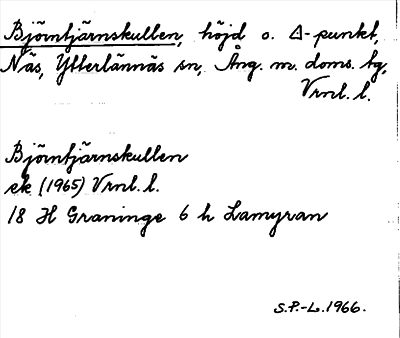 Björntjärnskullen, höjd o. Δ-punkt,
Näs, Ytterlännäs sn, Ång. m. doms. tg,
Vrnl. l.
Björntjärnskullen
ek (1965) Vrnl. l.
18 H Graninge 6 h Lamyran
S.P.-L. 1966.